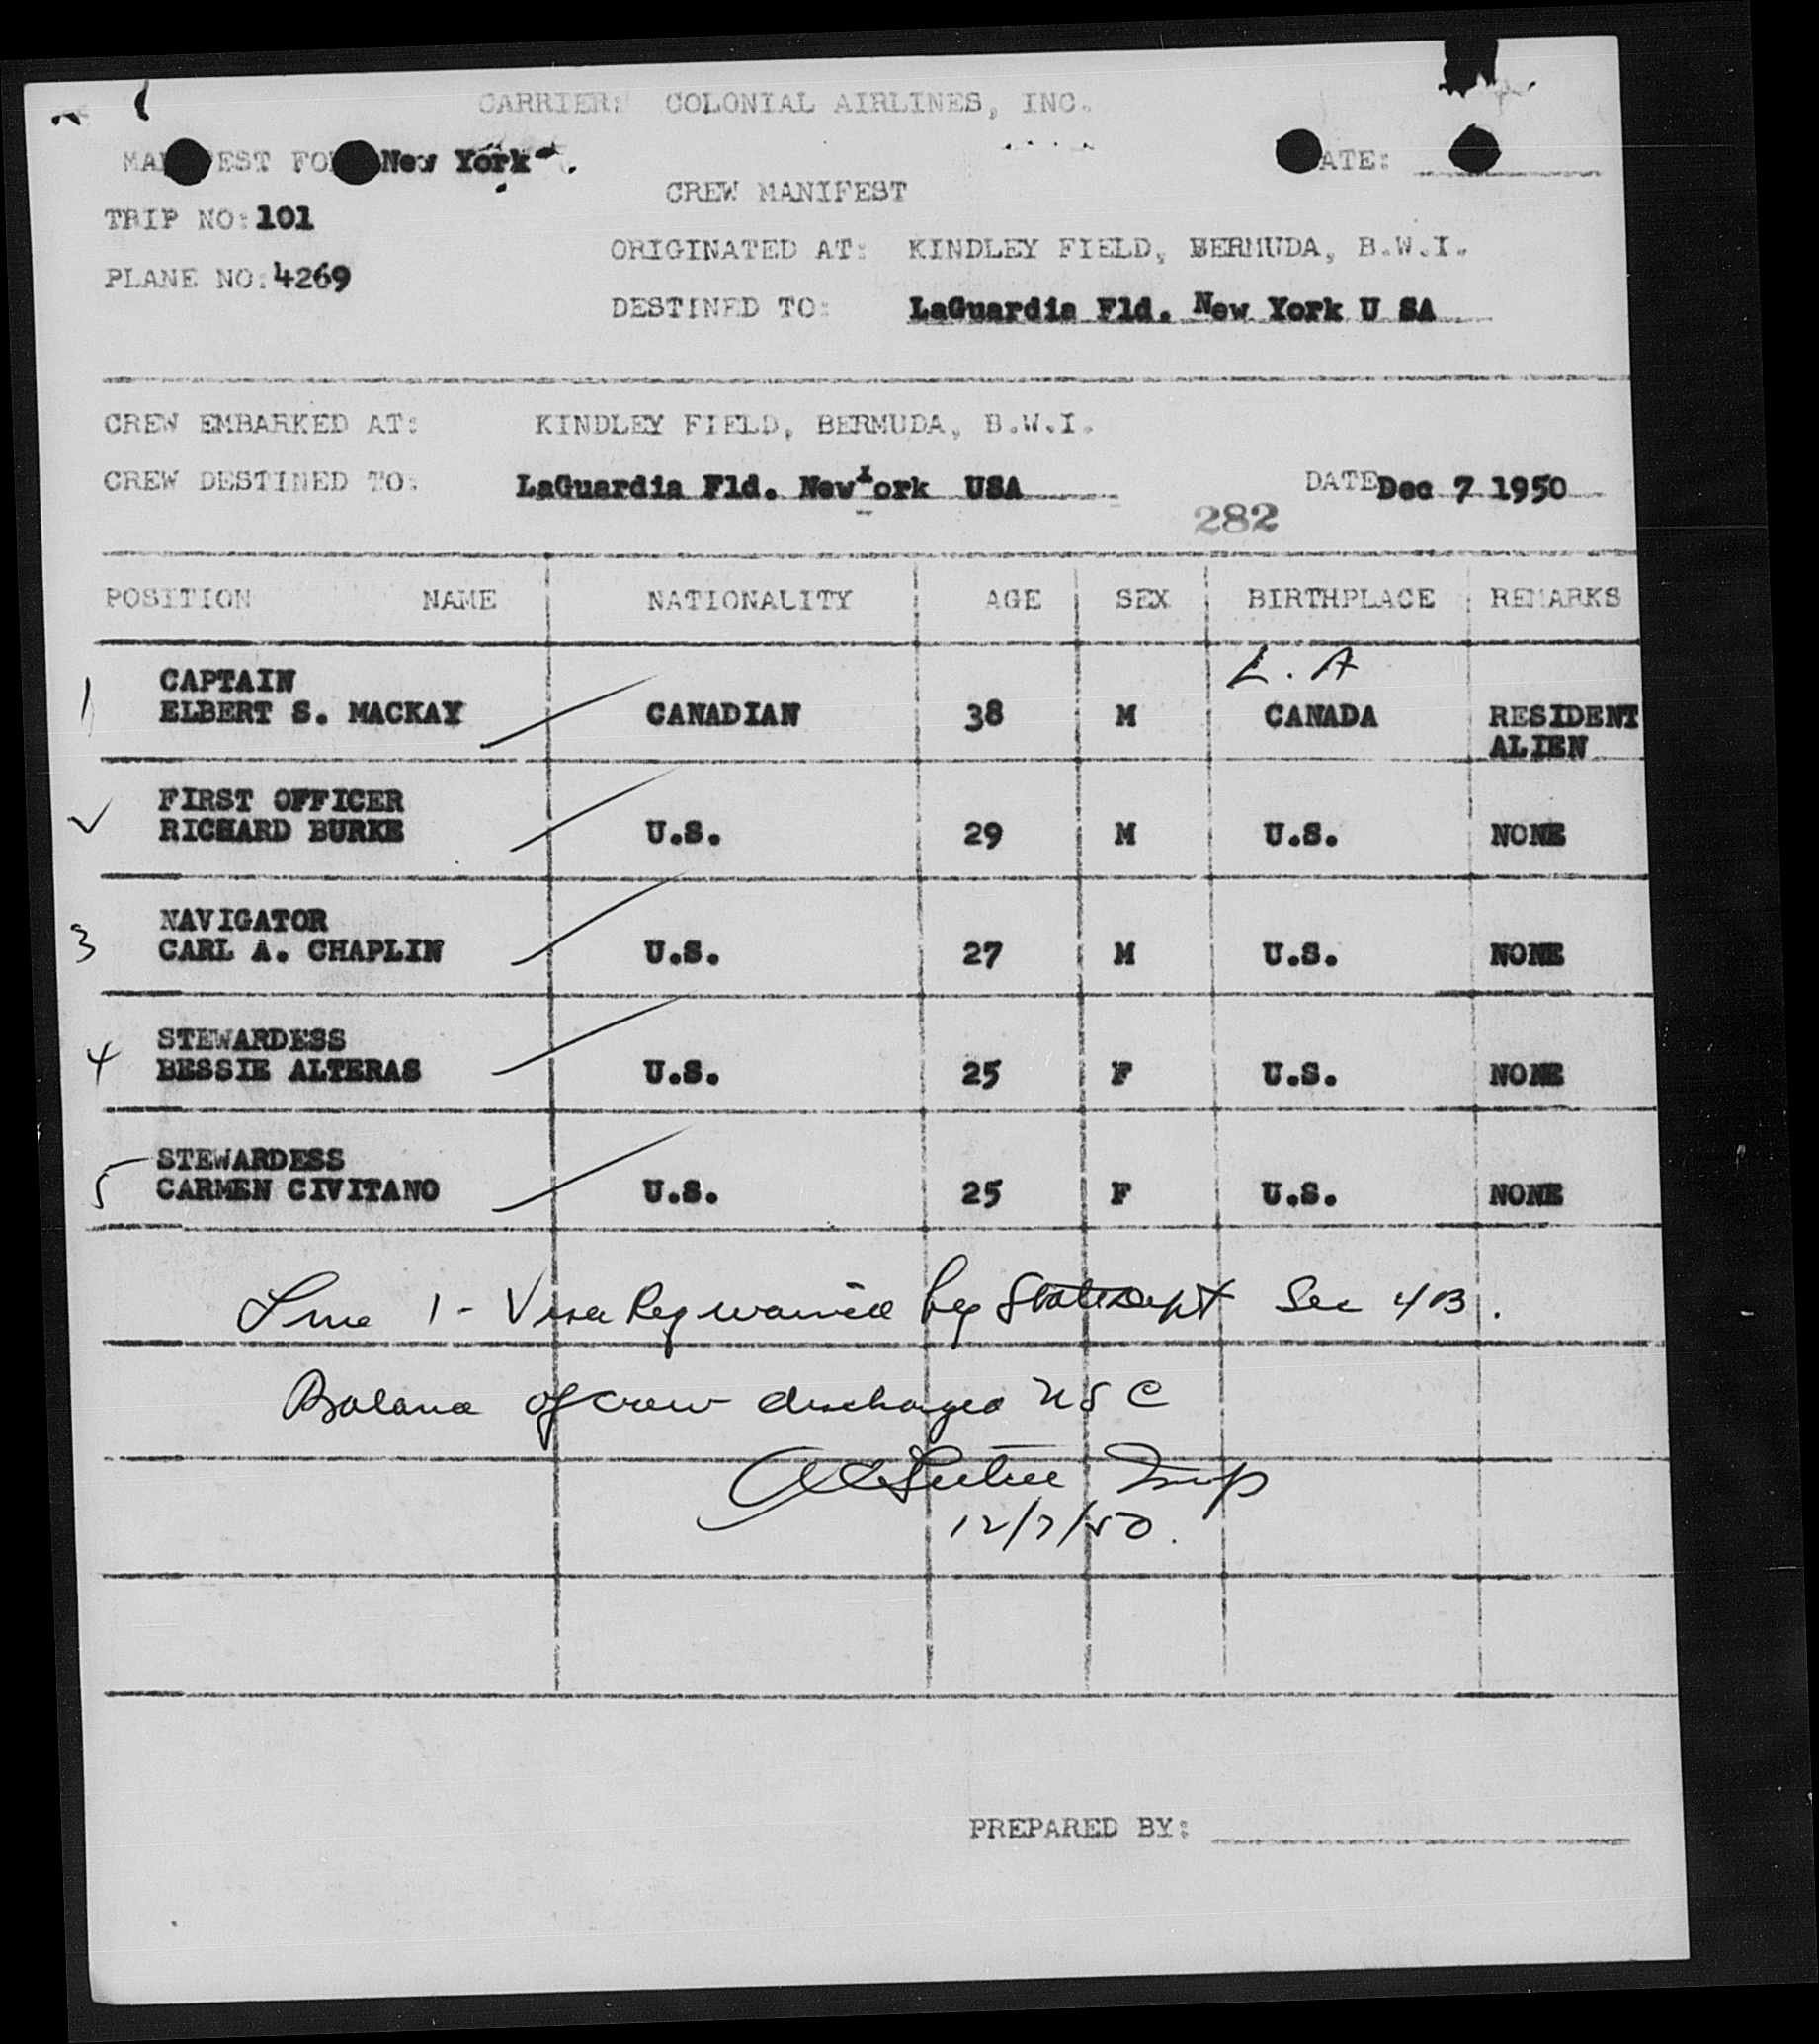 CARRIER: COLONIAL AIRLINES, INC.
MA EST FO New York
ATE:
CREW MANIFEST
TRIP NO: 101
ORIGINATED AT: KINDLEY FIELD, BERMUDA, B.W.I.
PLANE NO: 4269
DESTINED TO: LaGuardia Fld. New York U SA
CREW EMBARKED AT: KINDLEY FIELD, BERMUDA, B.W.I.
CREW DESTINED TO: LaGuardia Fld. New York USA DATE Dec 7 1950
282
POSITION NAME NATIONALITY AGE SEX BIRTHPLACE REMARKS
L. A
CAPTAIN
1 ELBERT S. MACKAY CANADIAN 38 M CANADA RESIDENT
ALIEN
FIRST OFFICER
RICHARD BURKE U.S. 29 M U.S. NONE
NAVIGATOR
3 CARL A. CHAPLIN U.S. 27 M U.S. NONE
STEWARDESS
4 BESSIE ALTERAS U.S. 25 F U.S. NONE
STEWARDESS
5 CARMEN CIVITANO U.S. 25 F U.S. NONE
Line 1 - Visa Req waived by State Dept Sec 4B.
Balance of crew discharged USC
Insp
12/7/50.
PREPARED BY: